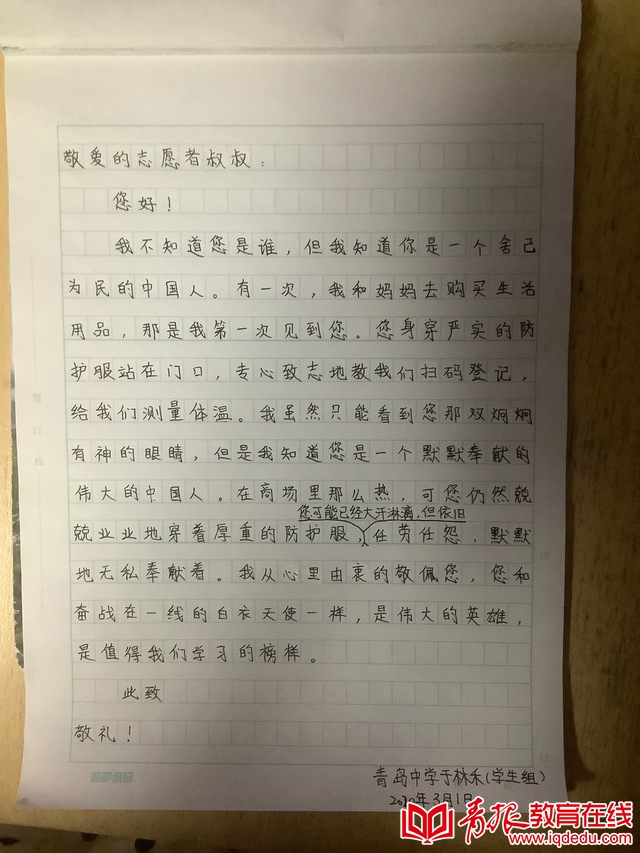 敬爱的志愿者叔叔：
您好！
我不知道您是谁，但我知道你是一个舍己
为民的中国人。有一次，我和妈妈去购买生活
用品，那是我第一次见到您。您身穿严实的防
护服站在门口，专心致志地教我们扫码登记，
给我们测量体温。我虽然只能看到您那双炯炯
有神的眼睛，但是我知道您是一个默默奉献的
伟大的中国人。在商场里那么热，可您仍然兢
您可能已经大汗淋漓，但依旧
兢业业地穿着厚重的防护服，任劳任怨，默默
地无私奉献着。我从心里由衷的敬佩您，您和
奋战在一线的白衣天使一样，是伟大的英雄，
是值得我们学习的榜样。
此致
敬礼！
青岛中学于林禾(学生组)
2020年3月1日
青报教育在线
www.iqdedu.com
装订线
5
10
15